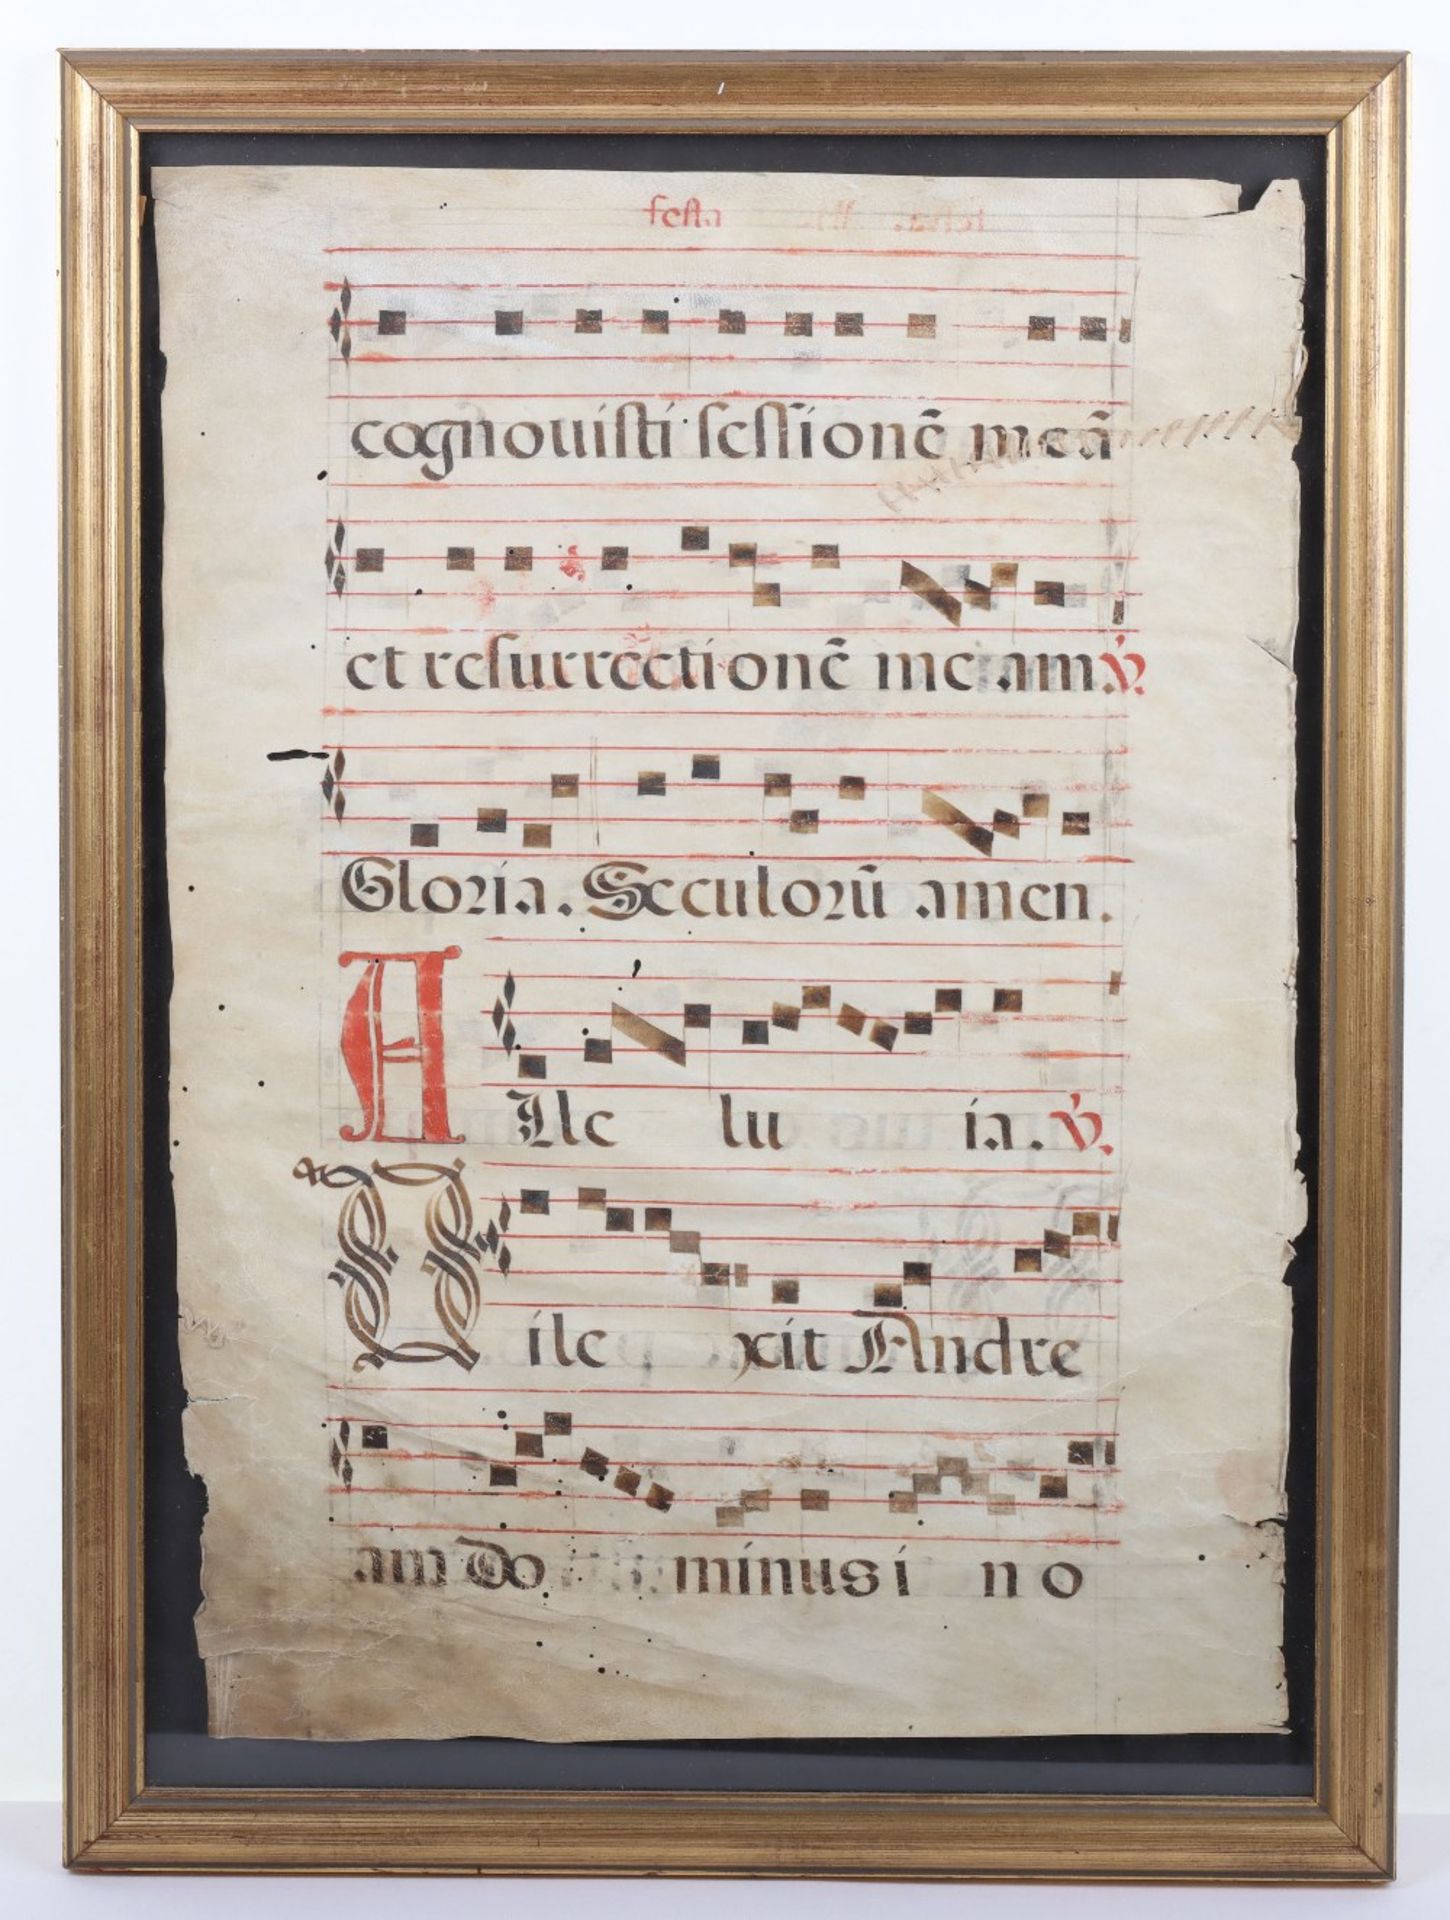 festa
cognouisti sessionē meā
et resurrectionē meam ℣.
Gloria. Seculorū amen.
A Lle lu ia. ℣.
D ile xit Andre
am Do minus i n o